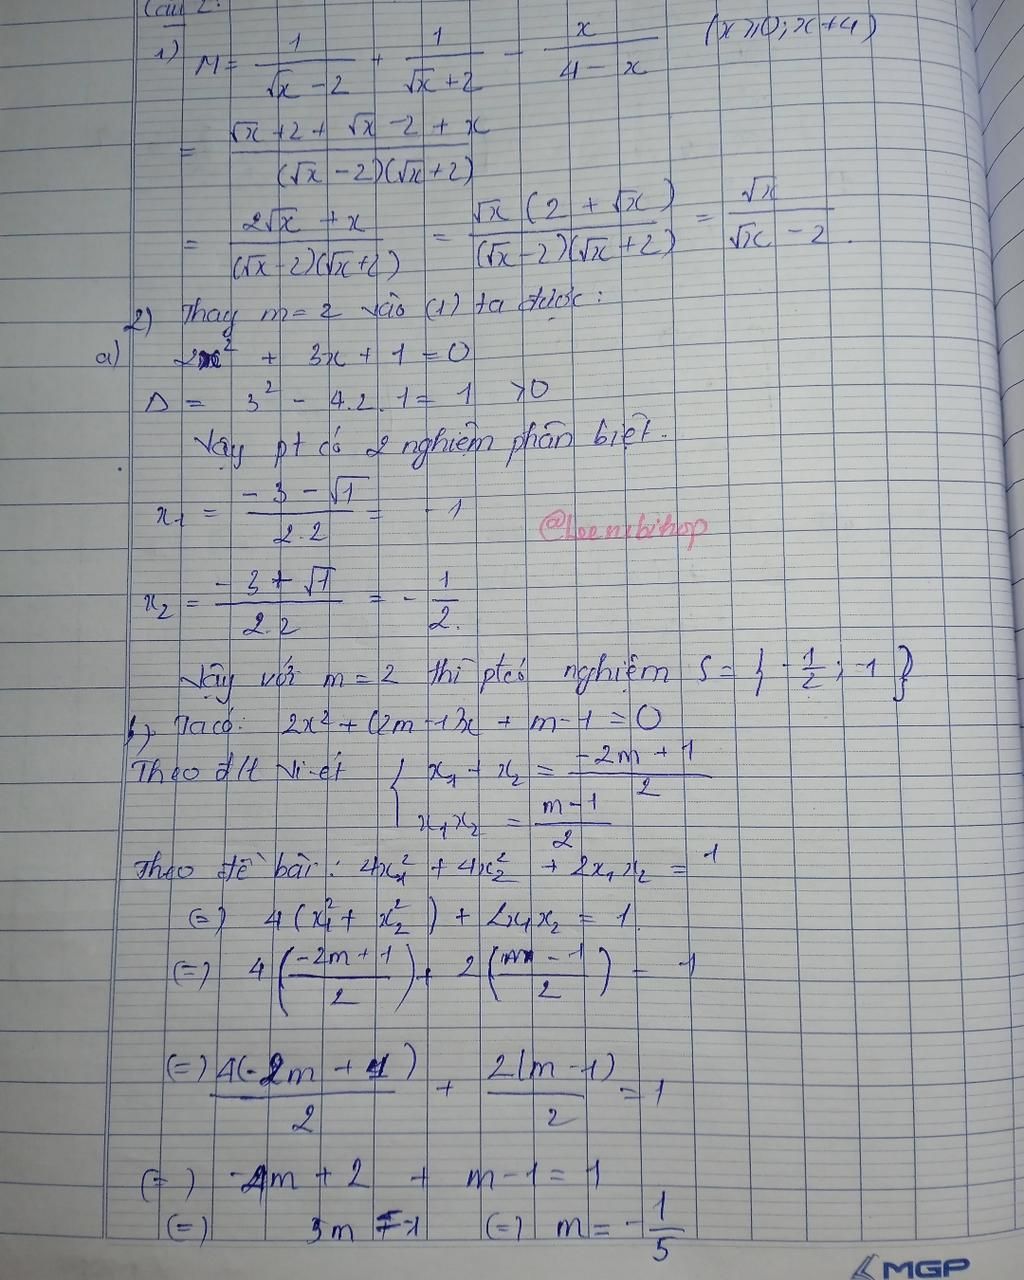 Câu 2:
1) M = 1/(√x - 2) + 1/(√x + 2) - x/(4 - x) (x ≥ 0; x ≠ 4)
= (√x + 2 + √x - 2 + x)/((√x - 2)(√x + 2))
= (2√x + x)/((√x - 2)(√x + 2)) = (√x (2 + √x))/((√x - 2)(√x + 2)) = √x/(√x - 2).
2) Thay m = 2 vào (1) ta được:
a) 2x² + 3x + 1 = 0
Δ = 3² - 4.2.1 = 1 > 0
Vậy pt có 2 nghiệm phân biệt.
x₁ = (-3 - √1)/(2.2) = -1
@Loenubihop
x₂ = (-3 + √1)/(2.2) = -1/2.
Vậy với m = 2 thì pt có nghiệm S = { -1/2 ; -1 }
b) Ta có: 2x² + (2m - 1)x + m - 1 = 0
Theo đ/l Vi-ét { x₁ + x₂ = (-2m + 1)/2
x₁x₂ = (m - 1)/2
Theo đề bài: 4x₁² + 4x₂² + 2x₁x₂ = 1
(=) 4(x₁² + x₂²) + 2x₁x₂ = 1
(=) 4((-2m + 1)/2) + 2((m - 1)/2) = 1
(=) 4(-2m + 1)/2 + 2(m - 1)/2 = 1
(=) -4m + 2 + m - 1 = 1
(=) (=) m = -1/5
MGP